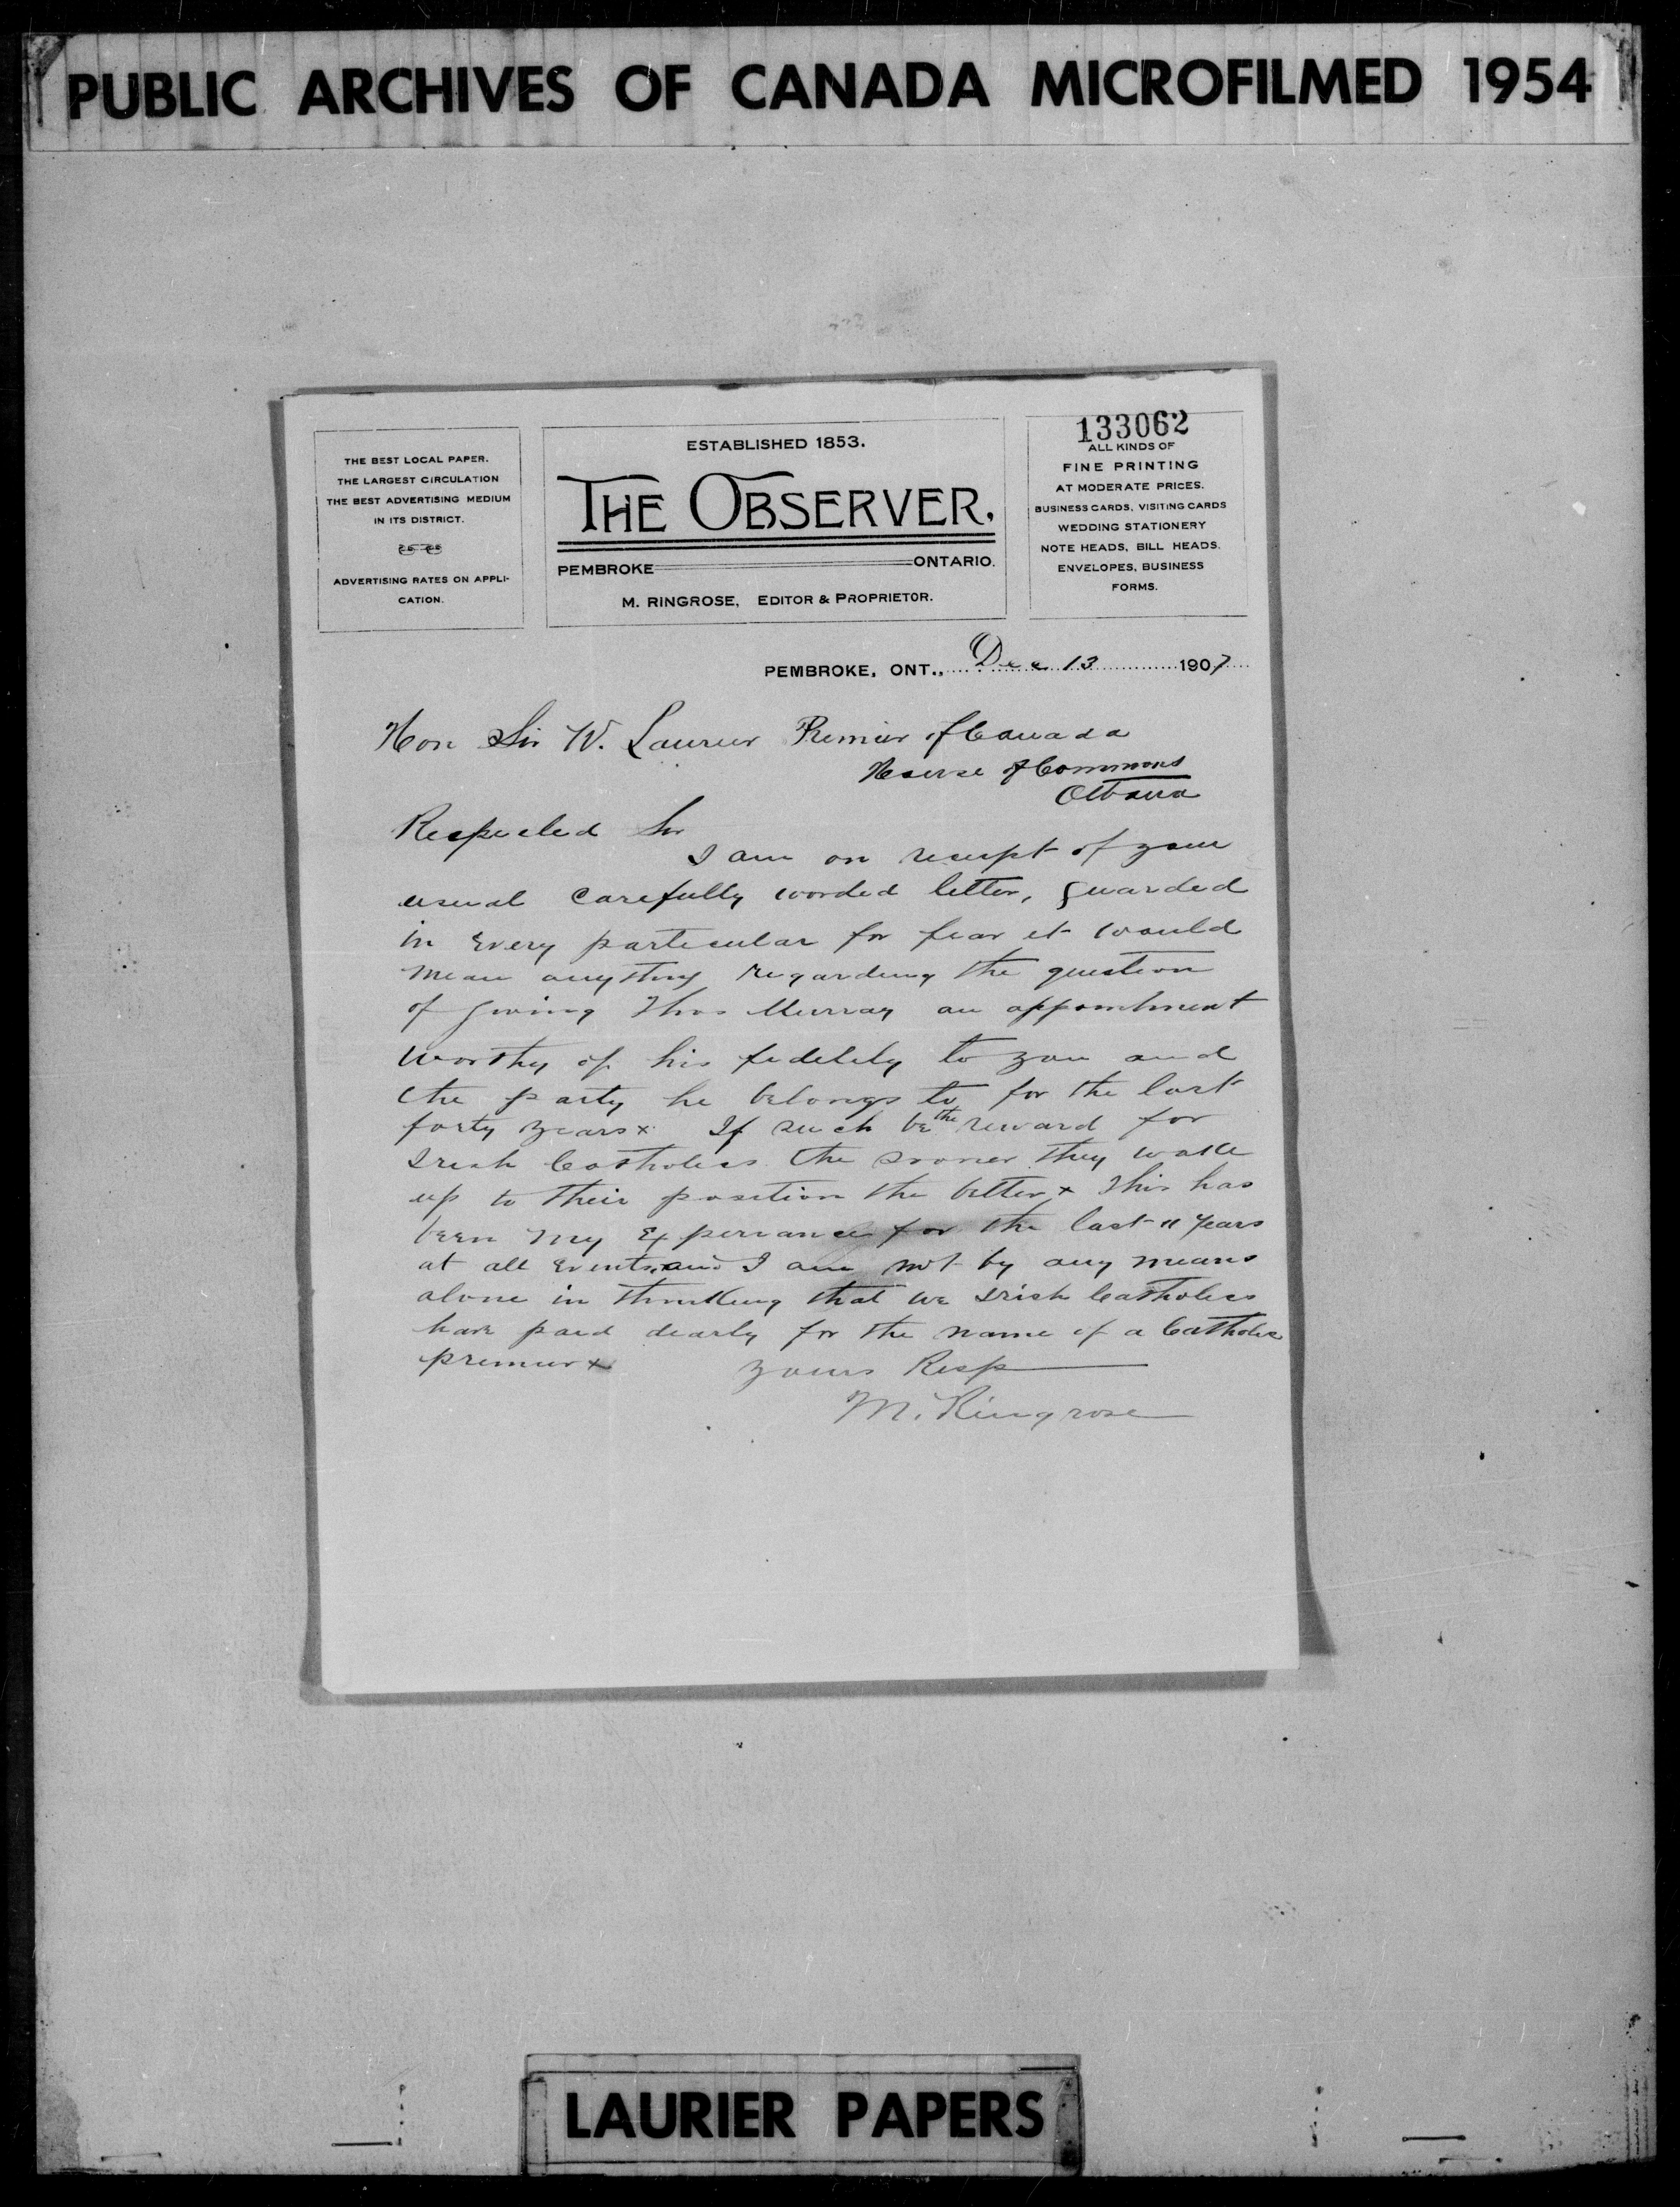 PUBLIC ARCHIVES OF CANADA MICROFILMED 1954
THE BEST LOCAL PAPER.
THE LARGEST CIRCULATION
THE BEST ADVERTISING MEDIUM
IN ITS DISTRICT.
ADVERTISING RATES ON APPLI-
CATION.
ESTABLISHED 1853.
THE OBSERVER,
PEMBROKE ONTARIO.
M. RINGROSE, EDITOR & PROPRIETOR.
133062
ALL KINDS OF
FINE PRINTING
AT MODERATE PRICES.
BUSINESS CARDS, VISITING CARDS
WEDDING STATIONERY
NOTE HEADS, BILL HEADS.
ENVELOPES, BUSINESS
FORMS.
PEMBROKE, ONT., Dec 13 1907
Hon Sir W. Laurier Premier of Canada
House of Commons
Ottawa
Respected Sir
I am on receipt of your
usual carefully worded letter, guarded
in every particular for fear it would
mean anything regarding the question
of giving Thos Murray an appointment
worthy of his fidelity to you and
the party he belongs to for the last
forty years x If such be the reward for
Irish Catholics the sooner they wake
up to their position the better x This has
been my experiance for the last 11 years
at all events, and I am not by any means
alone in thinking that we Irish Catholics
have paid dearly for the name of a Catholic
premier x Yours Resp
M. Ringrose
LAURIER PAPERS